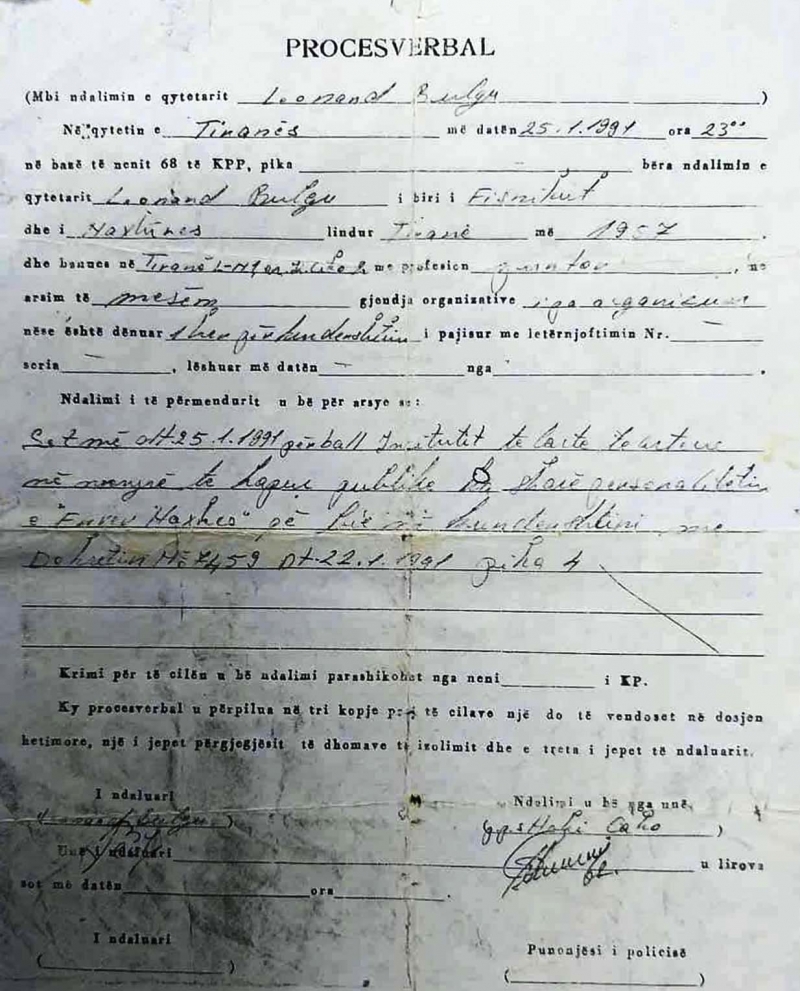 PROCESVERBAL
(Mbi ndalimin e qytetarit Leonard Bulgu )
Në qytetin e Tiranës më datën 25.1.1991 ora 23°°
në bazë të nenit 68 të KPP, pika bëra ndalimin e
qytetarit Leonard Bulgu i biri i Fisnikut
dhe i lindur Tiranë më 1957 .
dhe banues në Tiranë me profesion , me
arsim të mesëm gjendja organizative
nëse është dënuar i pajisur me letërnjoftimin Nr. —
seria — , lëshuar më datën — nga .
Ndalimi i të përmendurit u bë për arsye se:
Sot më dt. 25.1.1991 përball Institutit te larte te arteve
në menyrë te hapur publike personalitetin
e "Enver Hoxhes" që me
Dekretin Nr 7459 Dt. 22.1.1991 pika 4
Krimi për të cilën u bë ndalimi parashikohet nga neni i KP.
Ky procesverbal u përpilua në tri kopje prej të cilave një do të vendoset në dosjen
hetimore, një i jepet përgjegjësit të dhomave të izolimit dhe e treta i jepet të ndaluarit.
I ndaluari
Ndalimi u bë nga unë
( )
)
Unë i ndaluari u lirova
sot më datën ora .
I ndaluari
Punonjësi i policisë
( )
( )